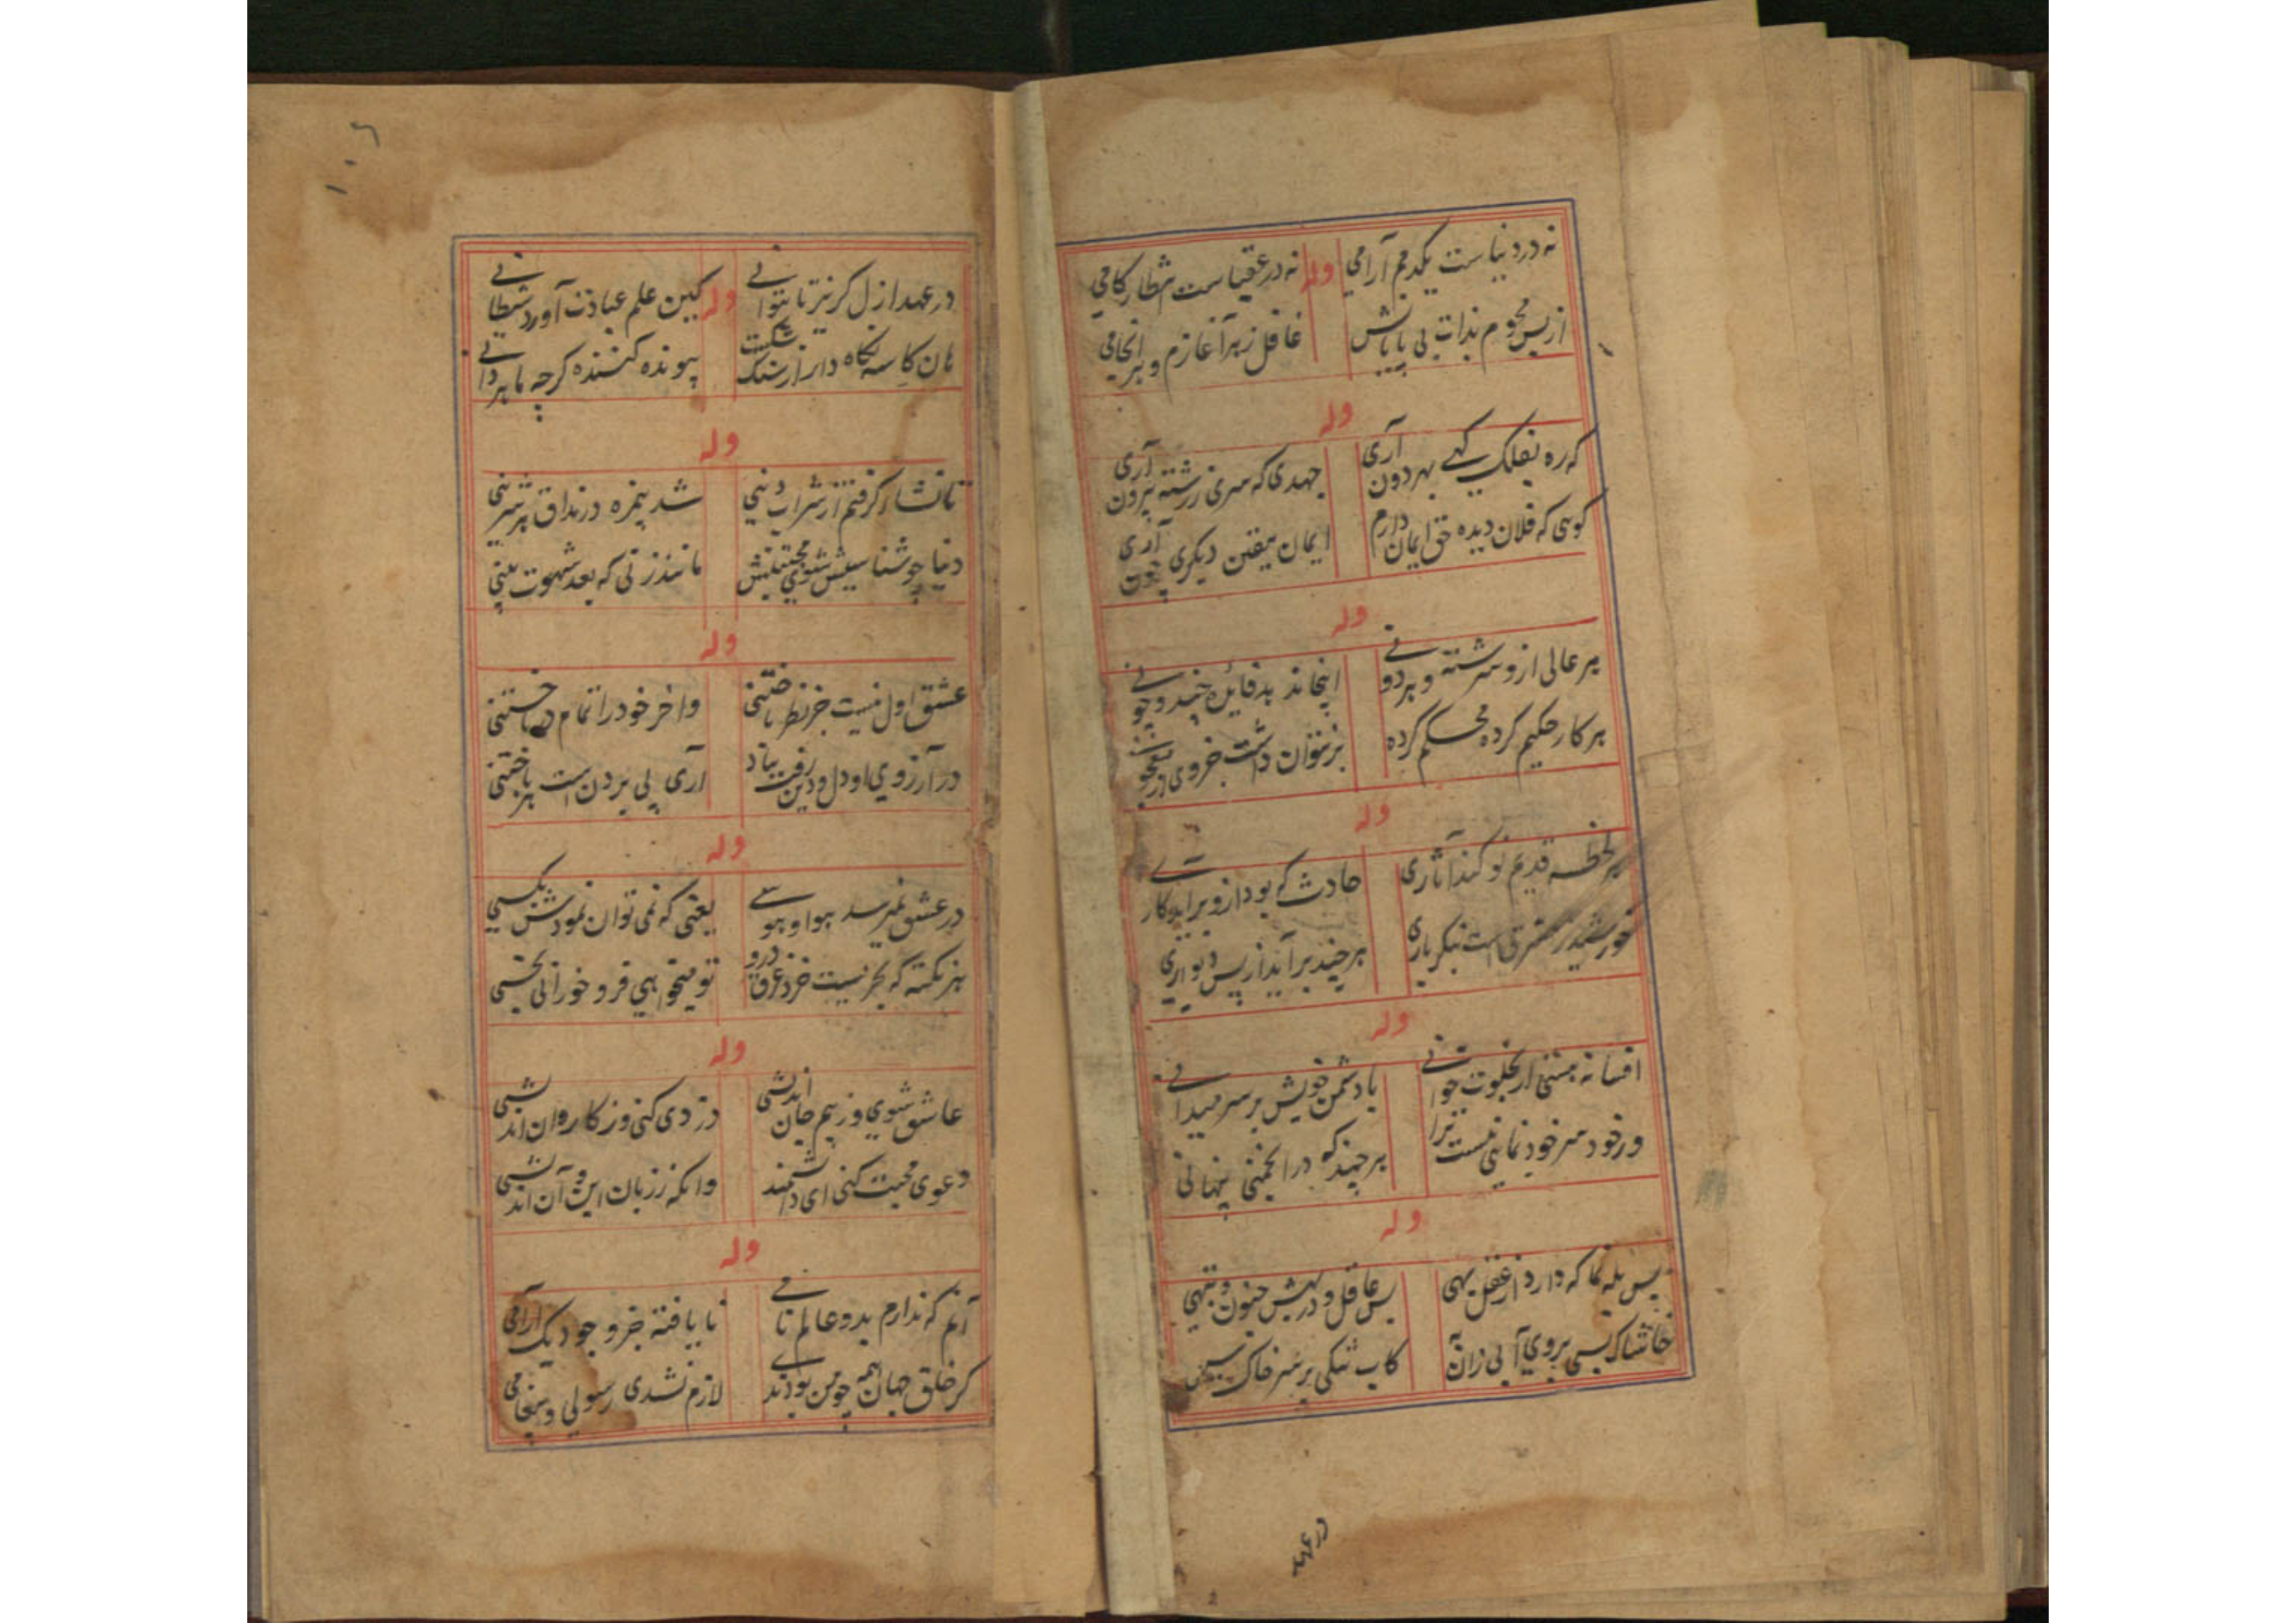 نه در دنیاست یکدم آرامی وله نه در عقبیاست شطار کامی
از بس محوم بذات بی پایانش غافل زهر آغازم و هر انجامی
وله
که ره بفلک کهی بهردون آری جهدی که سری ز رشته بیرون آری
کوی که فلان دیده حق ایمان دارم ایمان بیقین دیکری چون آری
وله
هر عالی ازو سرشته و هر دونی اینجا ند
هر کار حکیم کرده محکم کرده نتوان داشت جز وی
وله
هر لحظه قدیم نو کند آثاری حادث که بود ازو برآید کاری
خورشید ز مشرقی است بنکر باری هر چند برآید از پس دیواری
وله
افسانه هستی ار بخلوت خوانی با دشمن خویش بر سر میدانی
ور خود سر خود نمایی نیست ترا هر چند که در انجمنی پنهانی
وله
بس بله نما که دارد از عقل بهی بس عاقل و در بهش جنون و تبهی
خاشاک بسی بروی آبی زان ته کاب تنکی بر سر خاک
در عهد
۱۰۶
در عهد ازل کر نتر ناتوانی وله کین علم عبادت آورد شطانی
هان کاسه نکاه دار از سنک شکست پیونده کننده کرچه ماهر دانی
وله
تا نشاء کرفتم از شراب دینی شد بیمزه در مذاق هر شیرینی
دنیا چو شناسیش شوی مجتنبش مانند زنی که بعد شهوت بینی
وله
عشق اول نیست جز نظر باختنی واخر خود را تمام در باختنی
در آرزوی او دل و دین رفت بباد آری پی بردن است هر باختنی
وله
در عشق نمیرسد بهوا و هوسی یعنی که نمی توان نمودش بکسی
هر نکته که بحریست خرد غرق درو تو میخواهی فرو خورانی بخسی
وله
عاشق شوی و ز بیم جان اندیشی دزدی کنی و ز کاروان اندیشی
دعوی محبت کنی ای دانشمند وانکه ز زبان این و آن اندیشی
وله
آنم که ندارم بدو عالم نامی نا یافته جز وجود یک آرامی
کر خلق جهان همه چو من بودندی لازم نشدی رسولی و پیغامی